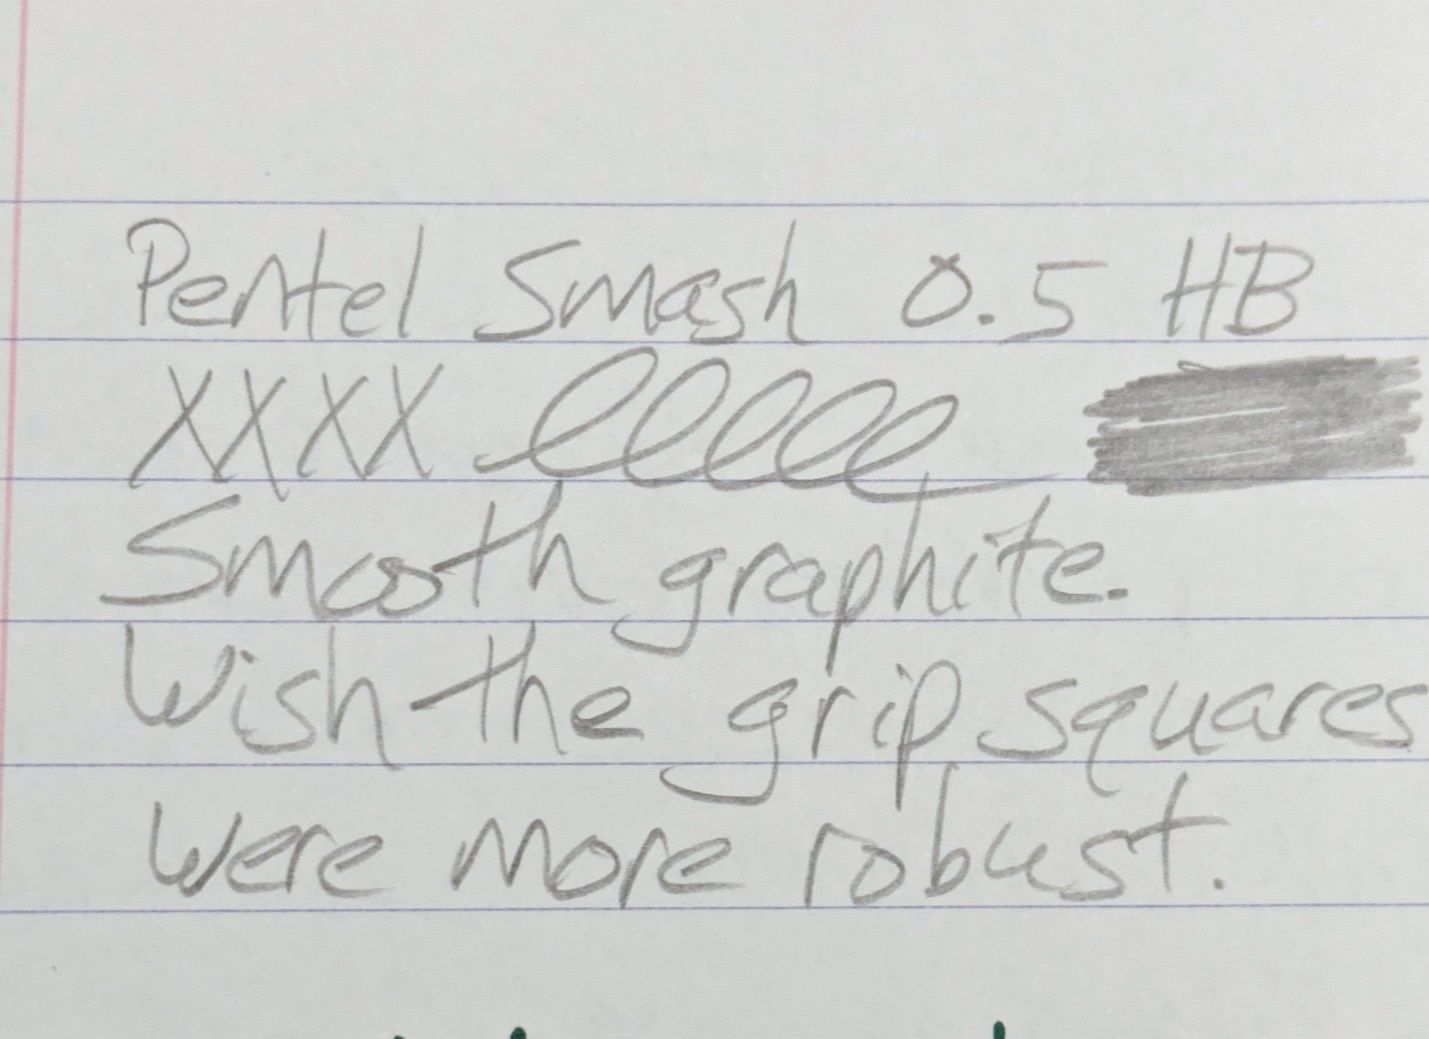 Pentel Smash 0.5 HB
XXXX
Smooth graphite.
Wish the grip squares
were more robust.